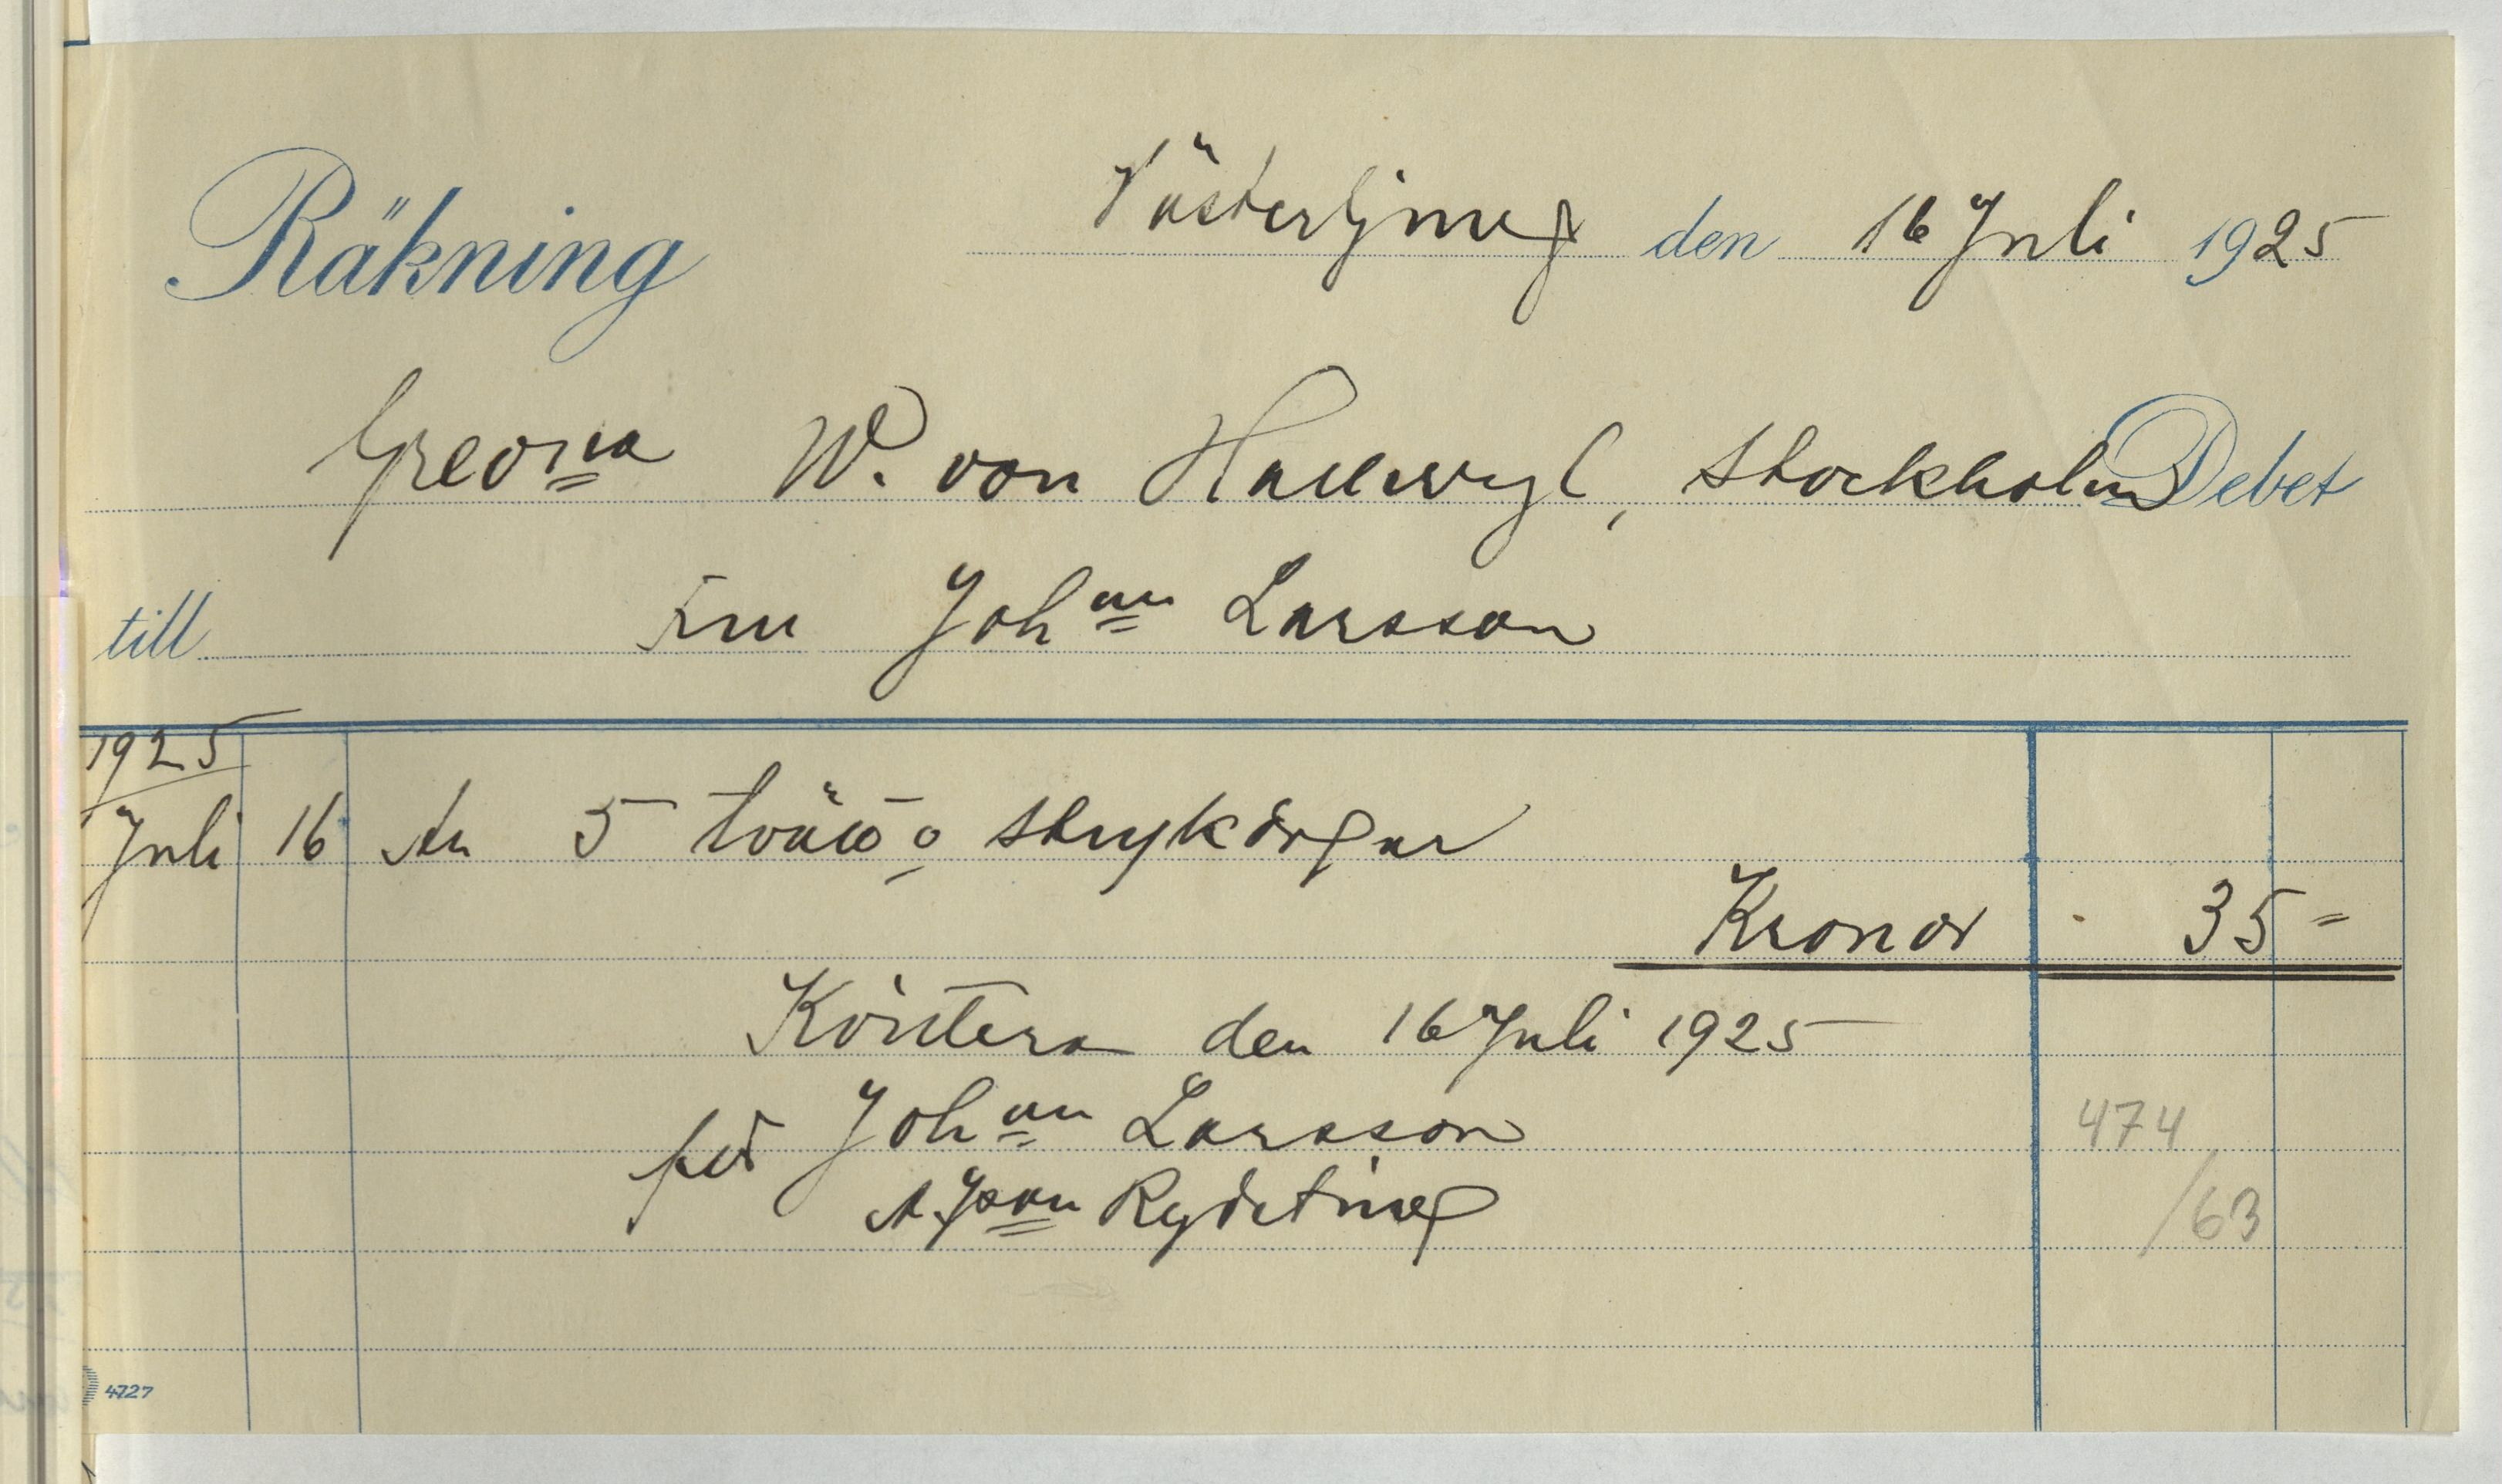 Räkning Västerljung den 16 Juli 1925
Grevinna W. von Hallwyl, Stockholm Debet
till Fru Johan Larsson
1925
Juli 16 An 5 tvätt o strykkorgar
Kronor 35=
Kvitteras den 16 Juli 1925
per Johan Larsson
474
/63
4727